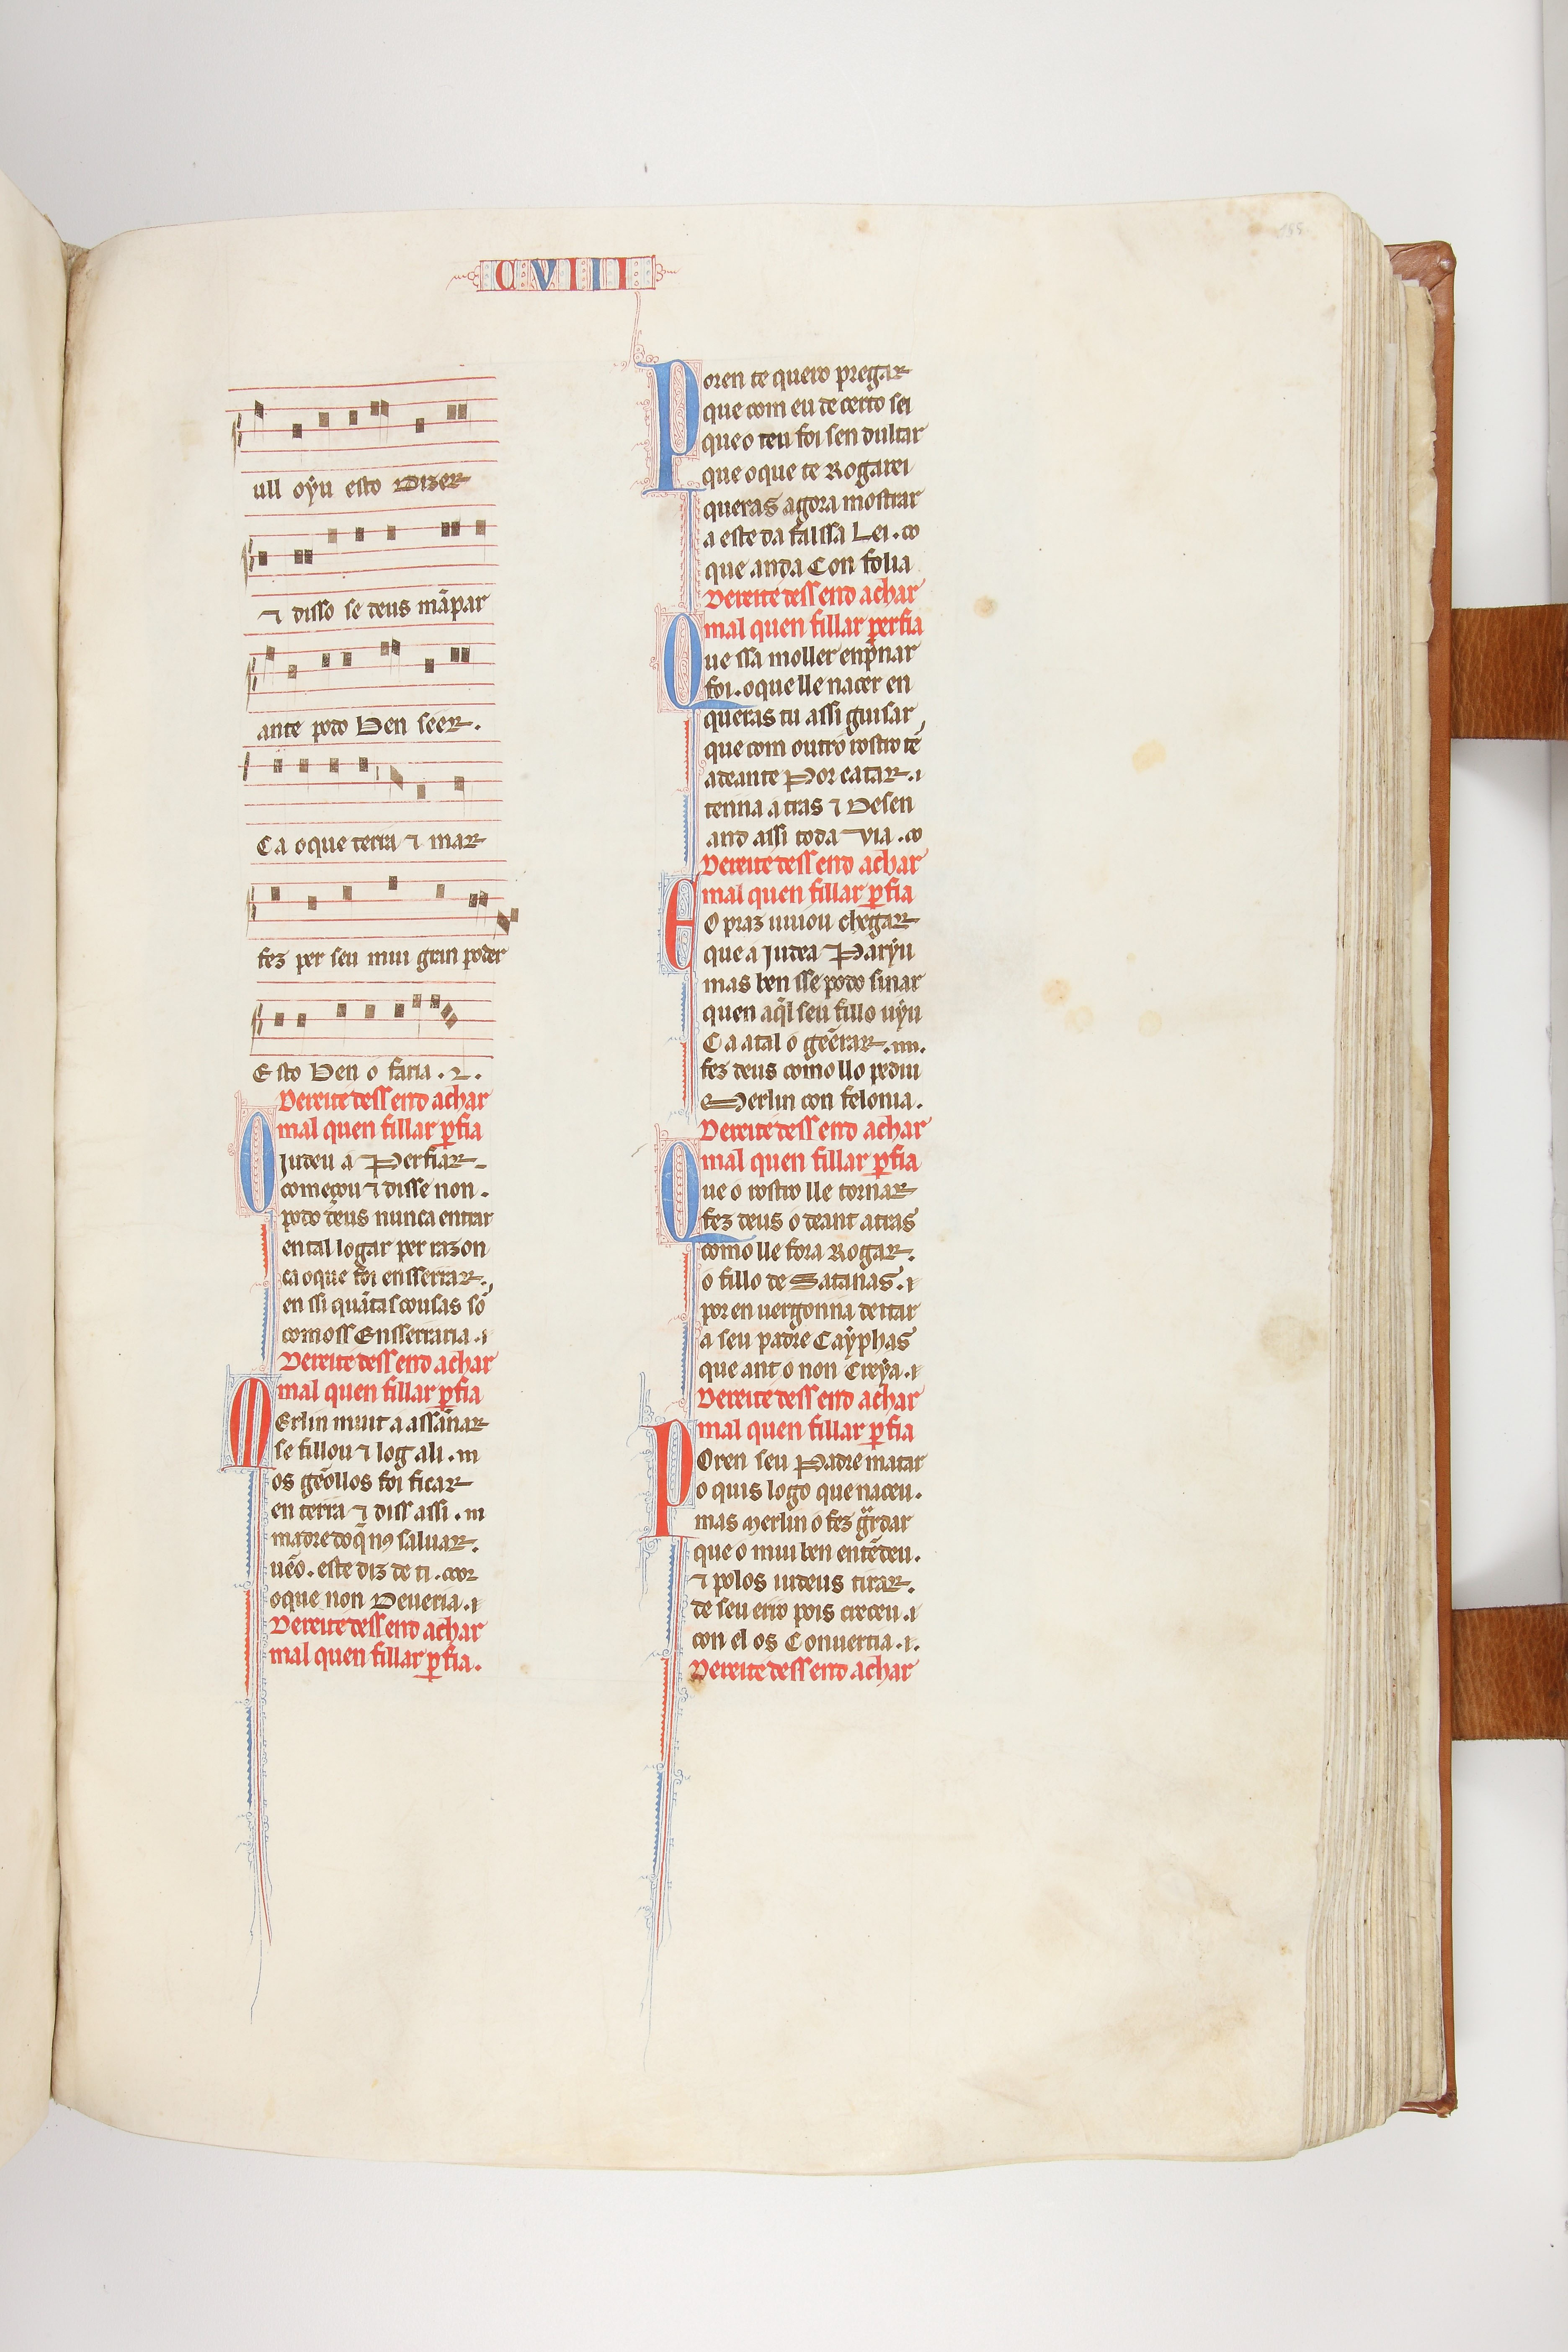 CVIII
155
ull oẏu esto Dizer
⁊ disso se deus mãpar
ante podo Ben seer.
Ca oque terra ⁊ mar
fez per seu mui gran poder
Esto Ben o faria .2.
Dereite dess errd achar
mal quen fillar ꝑfia
O iudeu a Perfiar
começou ⁊ disse non.
podo deus nunca entrar
en tal logar per razon
ca oque foi ensserrar.
en ssi quãtas cousas sõ
comoss Ensserraria .i
Dereite dess errd achar
mal quen fillar ꝑfia
MErlin muit a assãnar
se fillou ⁊ log ali . m
os gẽollos foi ficar
en terra ⁊ diss assi . m
madre doq̃ nꝰ saluar.
uẽo. este diz de ti .coor
oque non Deueria .i
Dereite dess errd achar
mal quen fillar ꝑfia.
Poren te quero pregar
que com eu de certo sei
queo teu foi sen dultar
que oque te Rogarei
queras agora mostrar
a este da falssa Lei .co
que anda Con folia
Dereite dess errd achar
mal quen fillar perfia
Que ssa moller enp̃nar
foi. oque lle nacer en
queras tu assi guisar
que com outro rostro tẽ
adeante Por catar .i
tenna a tras ⁊ Desen
and assi toda via .co
Dereite dess errd achar
mal quen fillar ꝑfia
EO praz uuiou chegar
que a Iudea Parẏu
mas ben sse podo sinar
quen aq̃l seu fillo uẏu
Ca atal o gẽerar .mi.
fez deus como llo pediu
Merlin con felonia.
Dereite dess errd achar
mal quen fillar ꝑfia
Que o rostro lle tornar
fez deus o deant atras
como lle fora Rogar.
o fillo de Satanas .i
por en uergonna deitar
a seu padre Caẏphas
que ant o non Creẏa .i
Dereite dess errd achar
mal quen fillar ꝑfia
POren seu Padre matar
o quis logo que naceu.
mas Merlin o fez gᷓrdar
que o mui ben entẽdeu.
⁊ polos iudeus tirar.
de seu erro pois creceu .i
con el os Conuertia .i.
Dereite dess errd achar